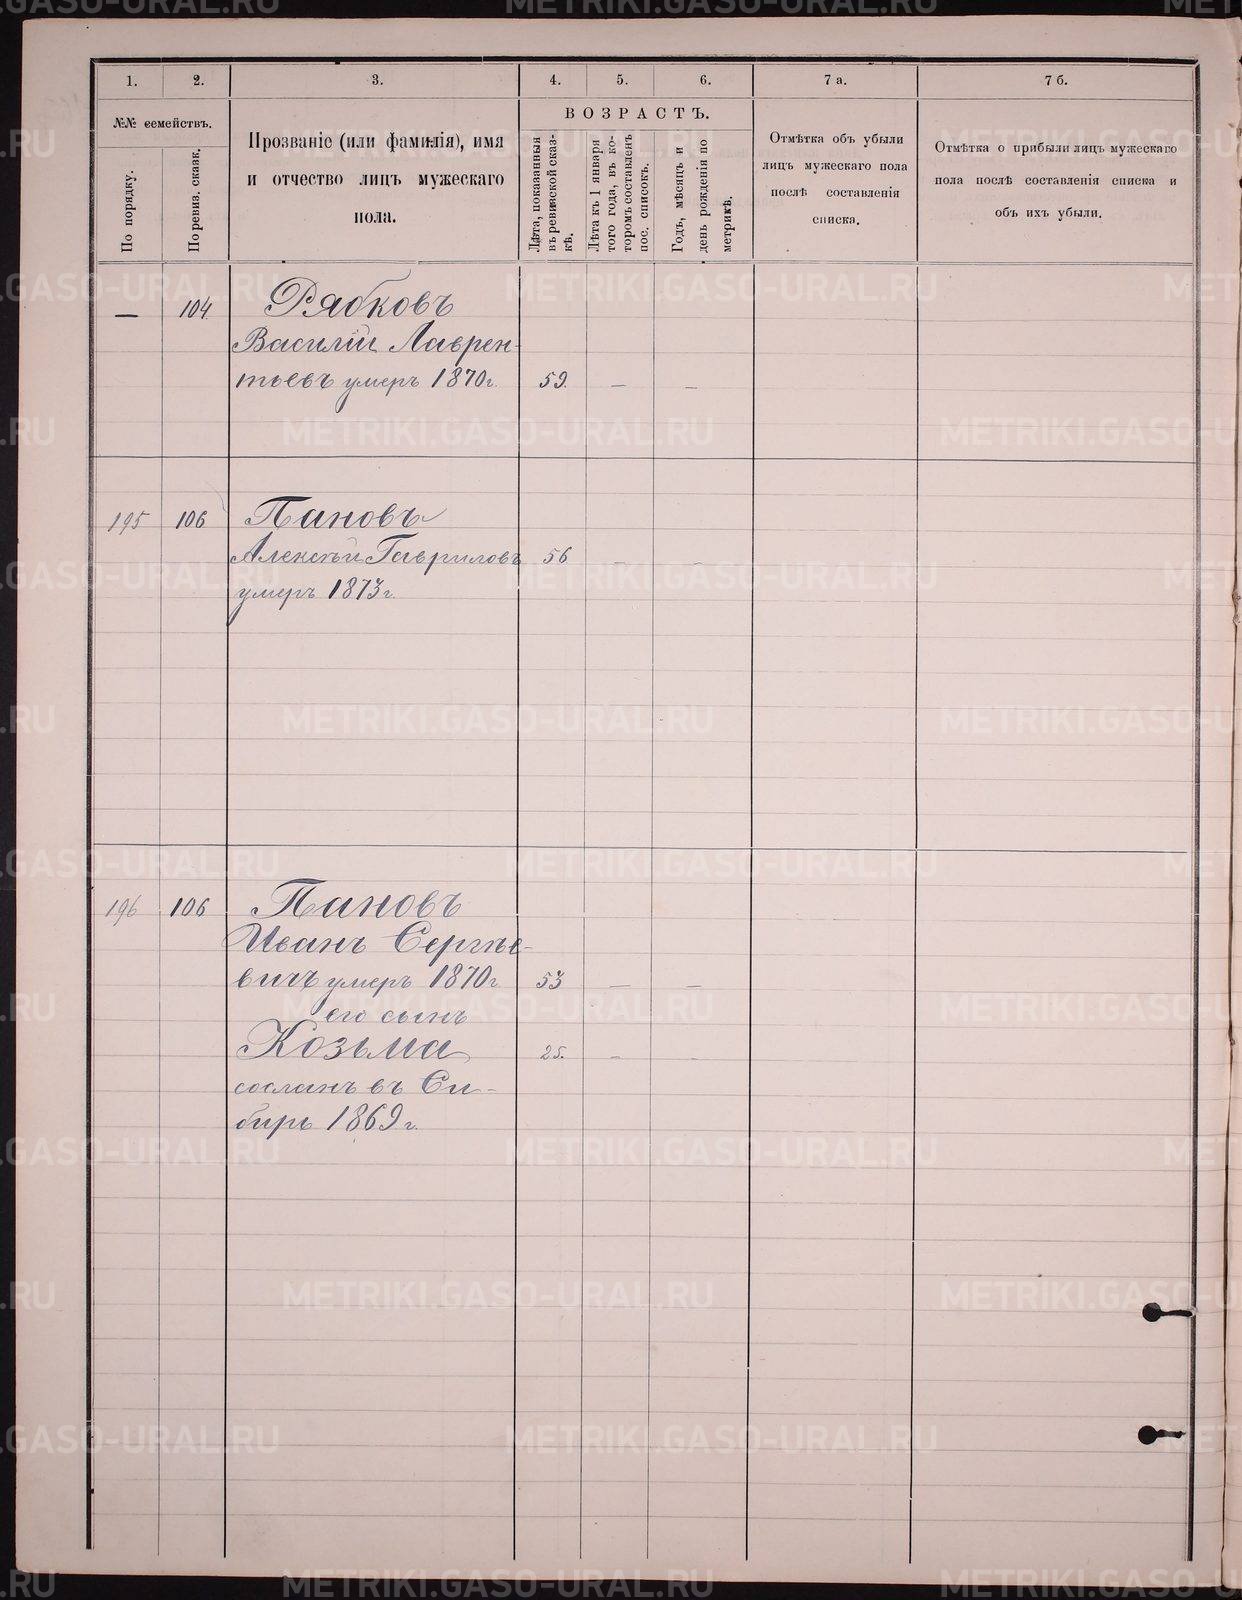 1. 2. 3. 4. 5. 6. 7 а. 7 б.
№№ семействъ.
По порядку.
По ревиз. сказк.
Прозваніе (или фамилія), имя
и отчество лицъ мужескаго
пола.
ВОЗРАСТЪ.
Лѣта, показанныя
въ ревизской сказ-
кѣ.
Лѣта къ 1 января
того года, въ ко-
торомъ составленъ
пос. списокъ.
Годъ, мѣсяцъ и
день рожденія по
метрикѣ.
Отмѣтка объ убыли
лицъ мужескаго пола
послѣ составленія
списка.
Отмѣтка о прибыли лицъ мужескаго
пола послѣ составленія списка и
объ ихъ убыли.
— 104. Рябковъ
Василій Лаврен-
тьевъ умеръ 1870 г. 59. — —
195 106 Пановъ
Алексѣй Гавриловъ 56 — -
умеръ 1873 г.
196 106 Пановъ
Иванъ Сергѣе-
вичъ умеръ 1870 г. 53 — —
его сынъ
Козьма 25. - -
сосланъ въ Си-
бирь 1869 г.
METRIKI.GASO-URAL.RU